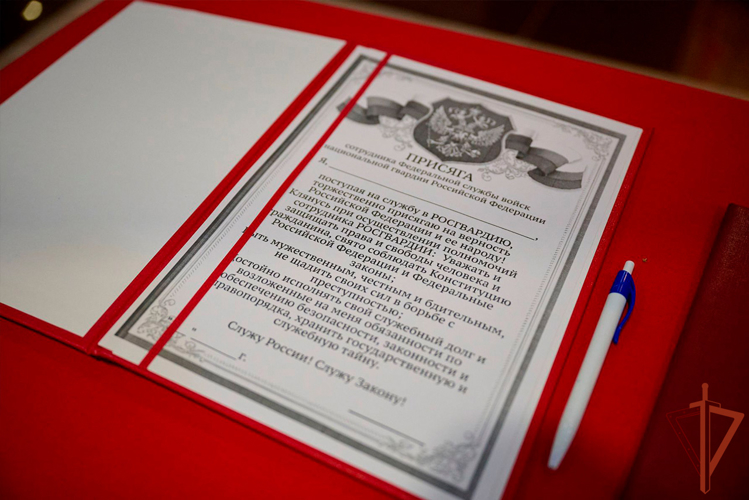 ПРИСЯГА
сотрудника Федеральной службы войск
национальной гвардии Российской Федерации
Я,
поступая на службу в РОСГВАРДИЮ,
торжественно присягаю на верность
Российской Федерации и ее народу!
Клянусь при осуществлении полномочий
сотрудника РОСГВАРДИИ: Уважать и
защищать права и свободы человека и
гражданина, свято соблюдать Конституцию
Российской Федерации и Федеральные
законы;
быть мужественным, честным и бдительным,
не щадить своих сил в борьбе с
преступностью;
достойно исполнять свой служебный долг и
возложенные на меня обязанности по
обеспечению безопасности, законности и
правопорядка, хранить государственную и
служебную тайну.
Служу России! Служу Закону!
г.